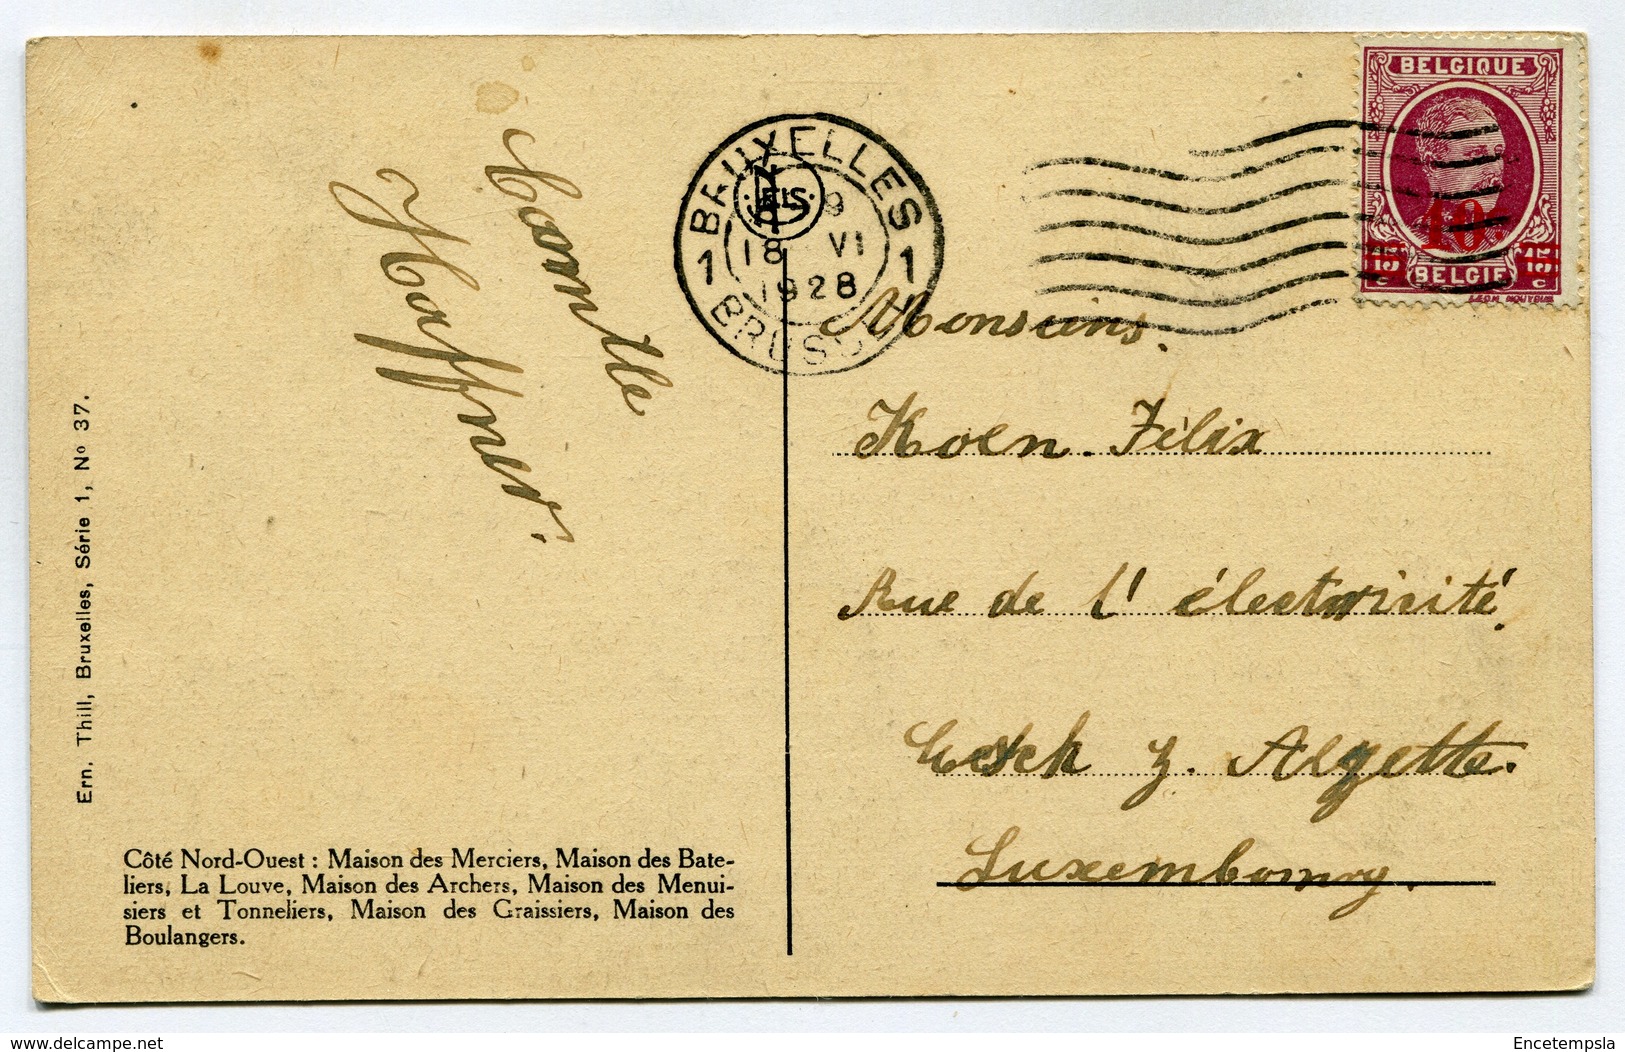 Comtte
Haffner.
Ern. Thill, Bruxelles, Série 1, No 37.
Côté Nord-Ouest : Maison des Merciers, Maison des Bate-
liers, La Louve, Maison des Archers, Maison des Menui-
siers et Tonneliers, Maison des Graissiers, Maison des
Boulangers.
BRUXELLES
18 VI
1928
1 1
BRUSSEL
BELGIQUE
10c
15 15
BELGIË
C C
Monsieurs.
Koen. Félix
Rue de l'électricité.
Esch z. Algette.
Luxembourg.
delcampe.net
Encetempsla